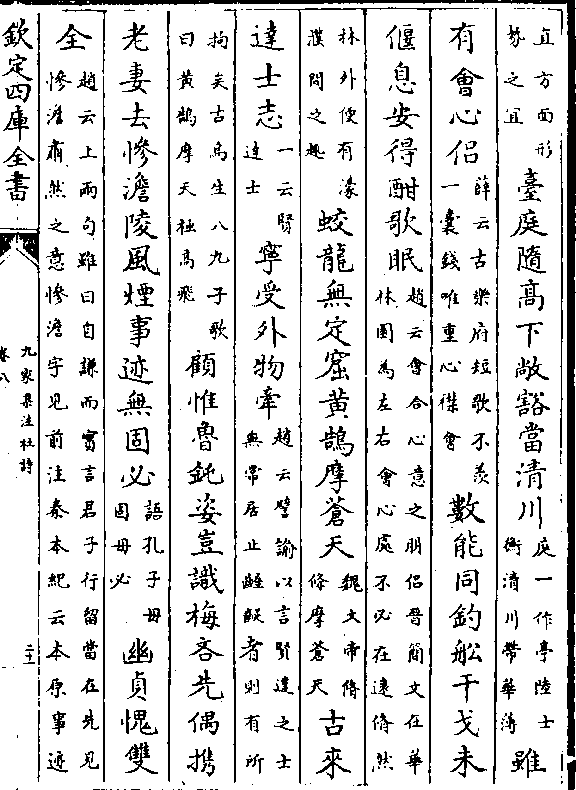 宜方面形
勢之宜
臺庭隨高下敞豁當清川
庭一作亭陸士
衡清川帶華薄
雖
有會心侶
薛云古樂府短歌不羨
一囊錢唯重心襟會
數能同釣船干戈未
偃息安得酣歌眠
趙云會合心意之朋侶晉簡文在華
林園為左右會心處不必在遠翛然
林外便有濠
濮間之趣
蛟龍無定窟黃鵠摩蒼天
魏文帝脩
條摩蒼天
古來
達士志
一云賢
達士
寧受外物牽
趙云譬諭以言賢達之士
無常居止齷齪者則有所
拘矣古烏生八九子歌
曰黃鵠摩天極高飛
顧惟魯鈍姿豈識悔吝先偶携
老妻去慘澹陵風煙事迹無固必
語孔子毋
固毋必
幽貞愧雙
全
趙云上兩句雖曰自謙而實言君子行留當在先見
慘澹肅然之意慘澹字見前注秦本紀云本原事迹
欽定四庫全書
九家集注杜詩
卷八